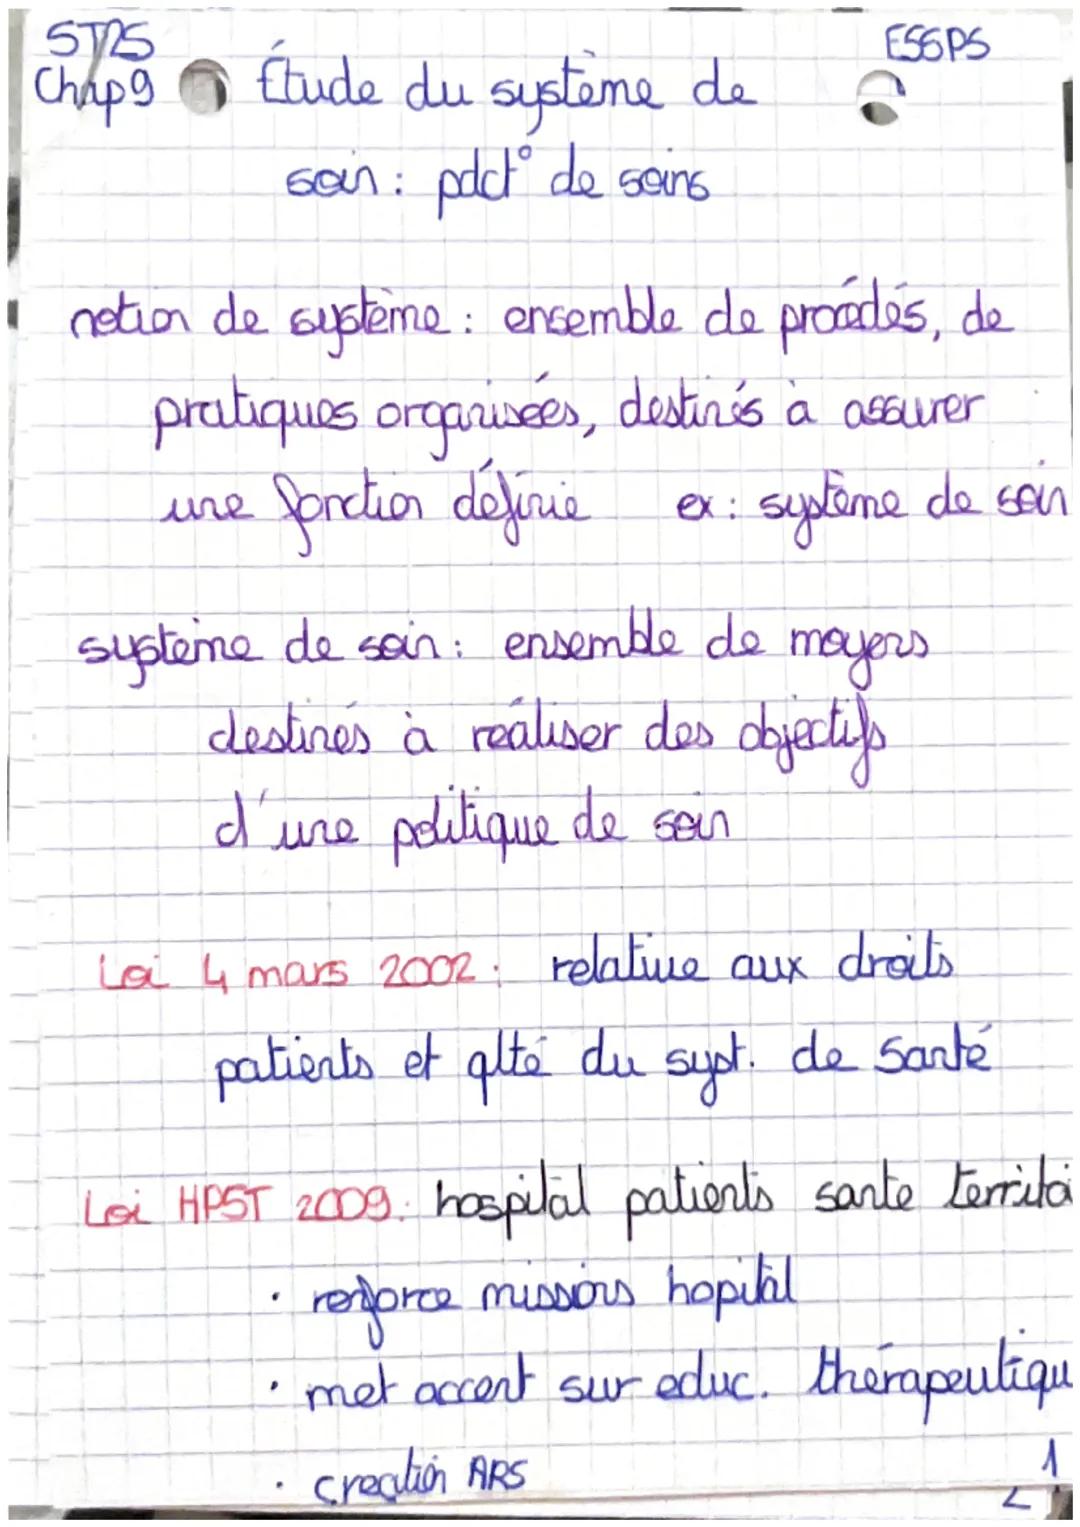 ST2S
ESSPS
Chap 9 Étude du système de
soin : pdct° de soins
notion de système : ensemble de procédés, de
pratiques organisées, destinés à assurer
une fonction définie ex : système de soin
système de soin : ensemble de moyens
destinés à réaliser des objectifs
d'une politique de soin
Loi 4 mars 2002 : relative aux droits
patients et qlté du syst. de santé
Loi HPST 2009 : hospital patients sante territoi
· renforce missions hopital
· met accent sur educ. thérapeutiqu
· creation ARS
1
2